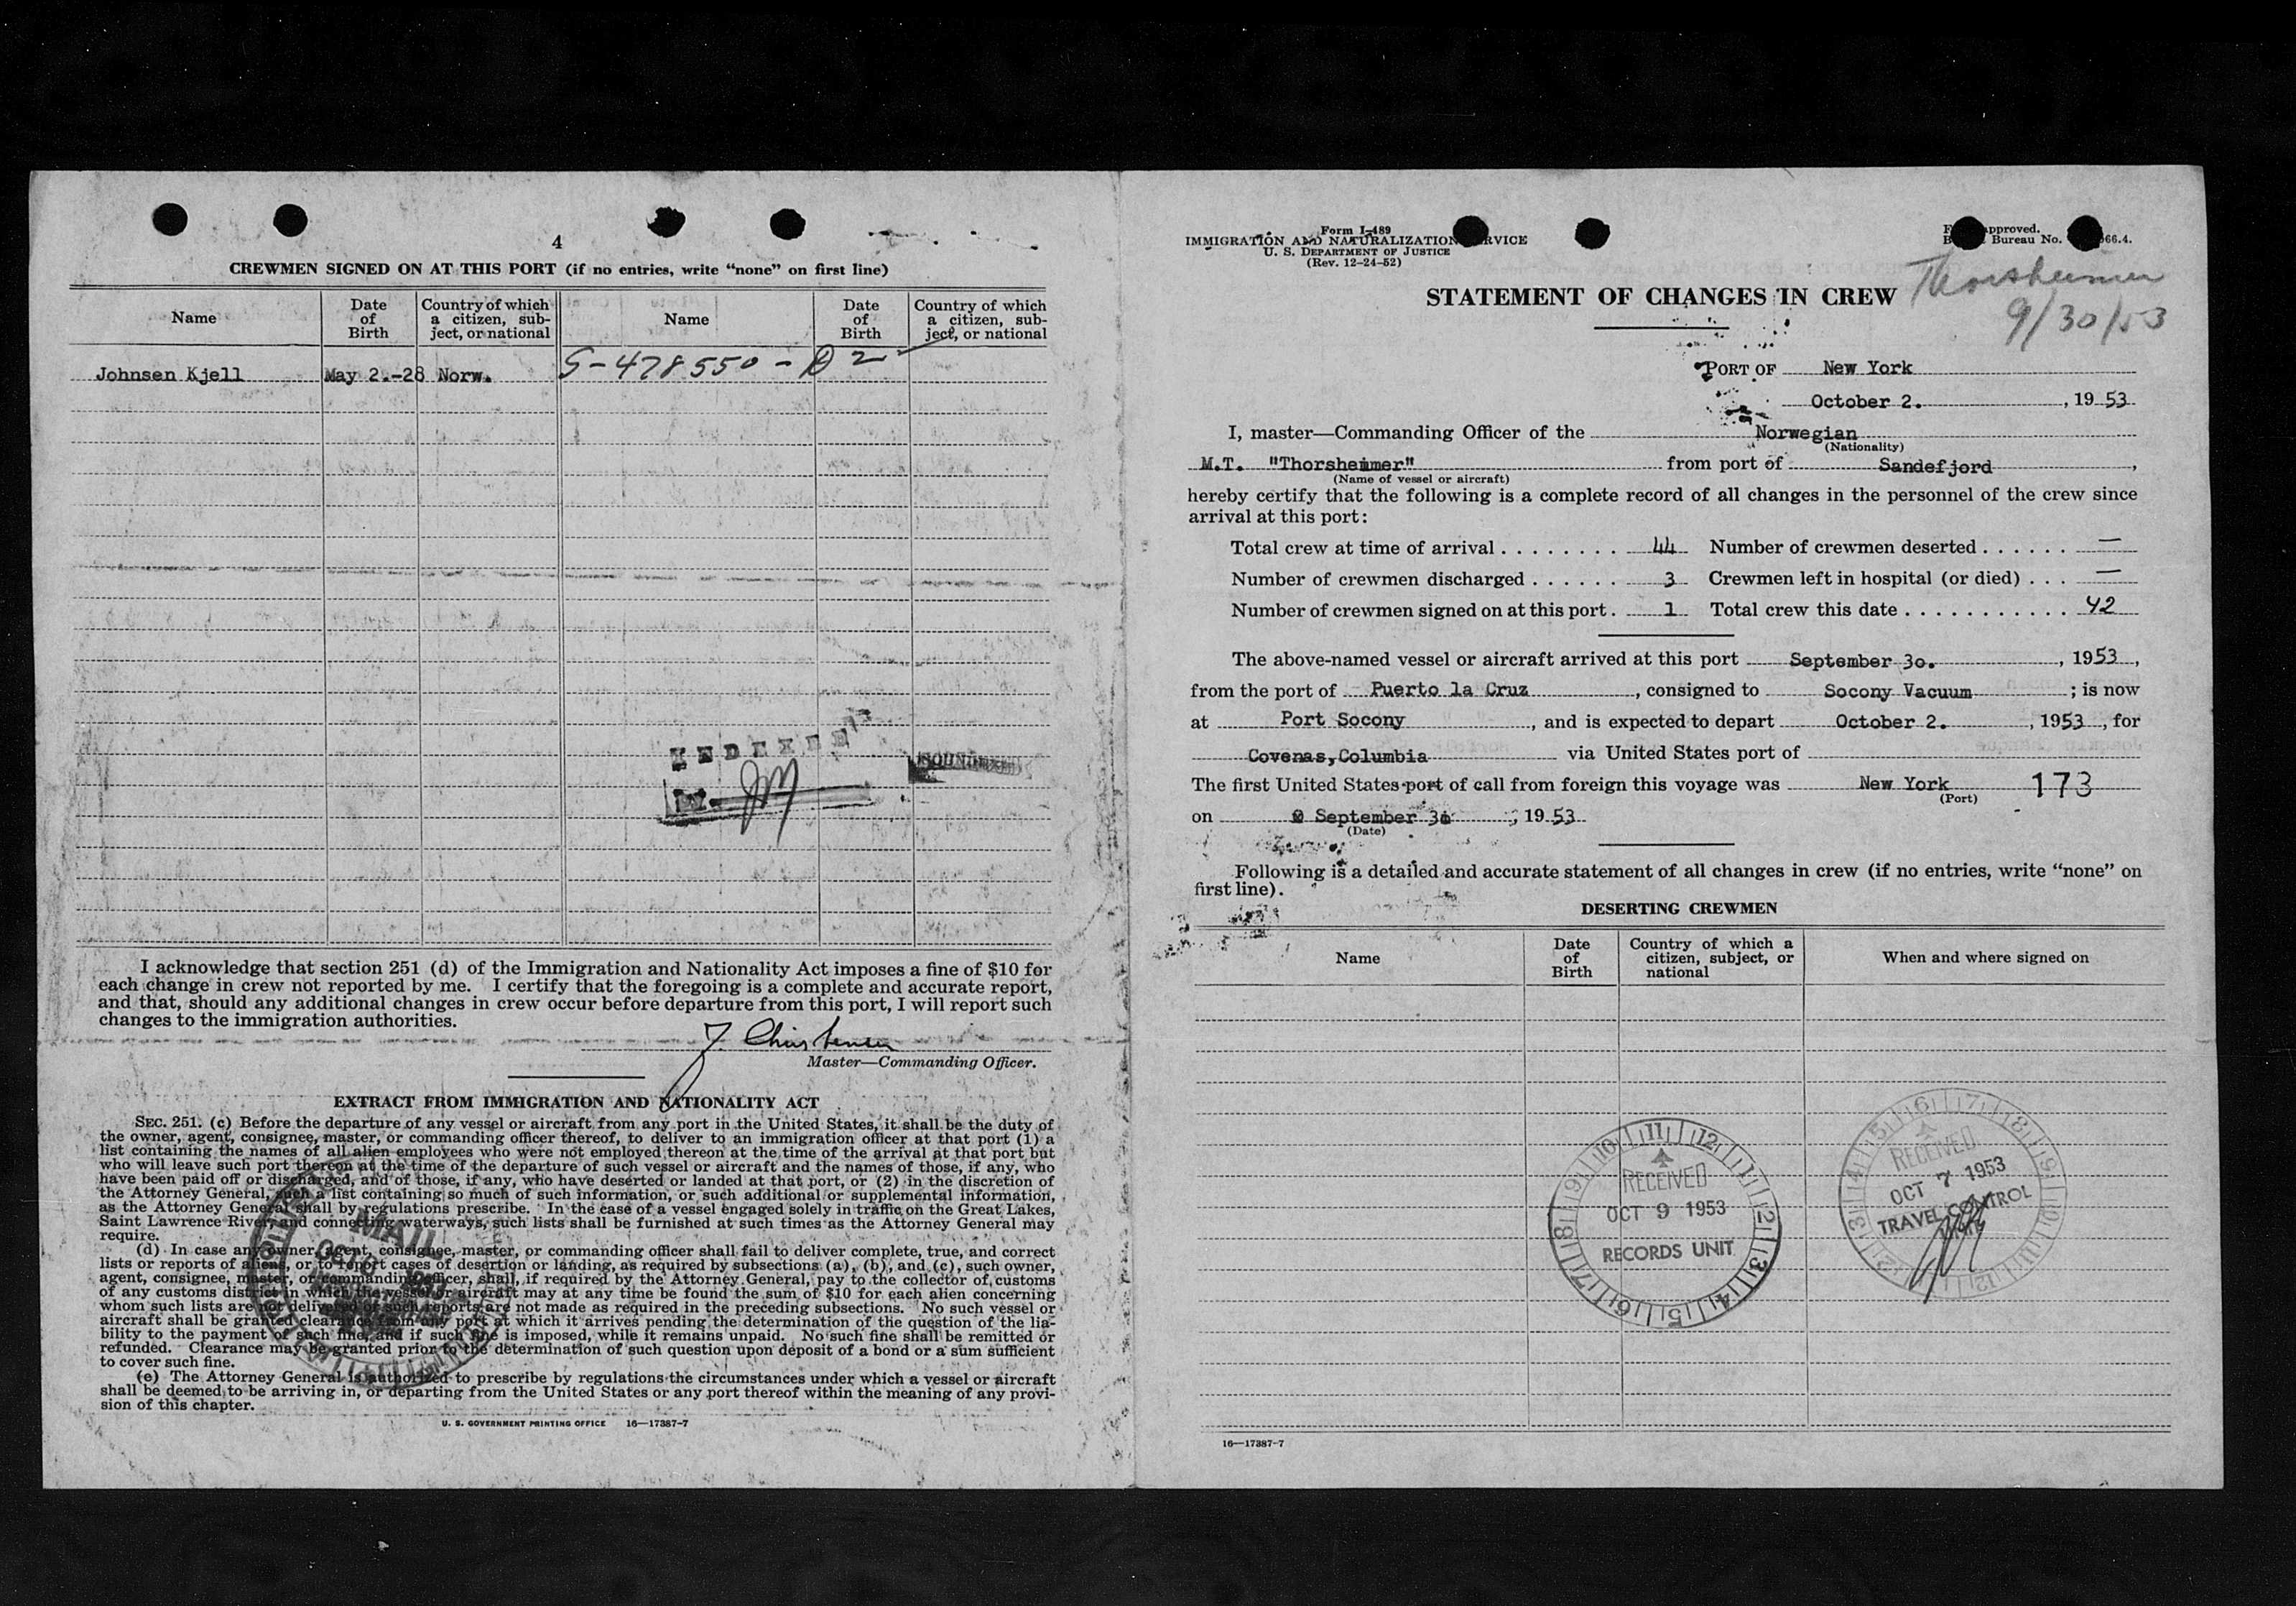 4
CREWMEN SIGNED ON AT THIS PORT (if no entries, write “none” on first line)
Name
Date of Birth
Country of which a citizen, subject, or national
Name
Date of Birth
Country of which a citizen, subject, or national
Johnsen Kjell May 2.-28 Norw. S-478550-D2
INDEXED
JM
I acknowledge that section 251 (d) of the Immigration and Nationality Act imposes a fine of $10 for
each change in crew not reported by me. I certify that the foregoing is a complete and accurate report,
and that, should any additional changes in crew occur before departure from this port, I will report such
changes to the immigration authorities.
J. Christensen
Master—Commanding Officer.
EXTRACT FROM IMMIGRATION AND NATIONALITY ACT
SEC. 251. (c) Before the departure of any vessel or aircraft from any port in the United States, it shall be the duty of
the owner, agent, consignee, master, or commanding officer thereof, to deliver to an immigration officer at that port (1) a
list containing the names of all alien employees who were not employed thereon at the time of the arrival at that port but
who will leave such port thereon at the time of the departure of such vessel or aircraft and the names of those, if any, who
have been paid off or discharged, and of those, if any, who have deserted or landed at that port, or (2) in the discretion of
the Attorney General, such a list containing so much of such information, or such additional or supplemental information,
as the Attorney General shall by regulations prescribe. In the case of a vessel engaged solely in traffic on the Great Lakes,
Saint Lawrence River, and connecting waterways, such lists shall be furnished at such times as the Attorney General may
require.
(d) In case any owner, agent, consignee, master, or commanding officer shall fail to deliver complete, true, and correct
lists or reports of aliens, or to report cases of desertion or landing, as required by subsections (a), (b), and (c), such owner,
agent, consignee, master, or commanding officer, shall, if required by the Attorney General, pay to the collector of customs
of any customs district in which the vessel or aircraft may at any time be found the sum of $10 for each alien concerning
whom such lists are not delivered or such reports are not made as required in the preceding subsections. No such vessel or
aircraft shall be granted clearance from any port at which it arrives pending the determination of the question of the lia-
bility to the payment of such fine, and if such fine is imposed, while it remains unpaid. No such fine shall be remitted or
refunded. Clearance may be granted prior to the determination of such question upon deposit of a bond or a sum sufficient
to cover such fine.
(e) The Attorney General is authorized to prescribe by regulations the circumstances under which a vessel or aircraft
shall be deemed to be arriving in, or departing from the United States or any port thereof within the meaning of any provi-
sion of this chapter.
MAIL
U. S. GOVERNMENT PRINTING OFFICE 16—17387-7
Form I-489
IMMIGRATION AND NATURALIZATION RVICE
U. S. DEPARTMENT OF JUSTICE
(Rev. 12-24-52)
pproved.
Bureau No. 66.4.
STATEMENT OF CHANGES IN CREW
Thorsheimer
9/30/53
PORT OF New York
October 2. , 19 53
I, master—Commanding Officer of the Norwegian
(Nationality)
M.T. "Thorsheimer" from port of Sandefjord ,
(Name of vessel or aircraft)
hereby certify that the following is a complete record of all changes in the personnel of the crew since
arrival at this port:
Total crew at time of arrival . . . . . . . . 44 Number of crewmen deserted . . . . . . —
Number of crewmen discharged . . . . . . 3 Crewmen left in hospital (or died) . . . —
Number of crewmen signed on at this port . 1 Total crew this date . . . . . . . . . . . . 42
The above-named vessel or aircraft arrived at this port September 30. , 1953 ,
from the port of Puerto la Cruz , consigned to Socony Vacuum ; is now
at Port Socony , and is expected to depart October 2. , 1953 , for
Covenas,Columbia via United States port of
The first United States port of call from foreign this voyage was New York 173
(Port)
on September 30 , 19 53
(Date)
Following is a detailed and accurate statement of all changes in crew (if no entries, write “none” on
first line).
DESERTING CREWMEN
Name
Date of Birth
Country of which a citizen, subject, or national
When and where signed on
RECEIVED
OCT 9 1953
RECORDS UNIT
RECEIVED
OCT 7 1953
TRAVEL CONTROL
UNIT
16—17387-7